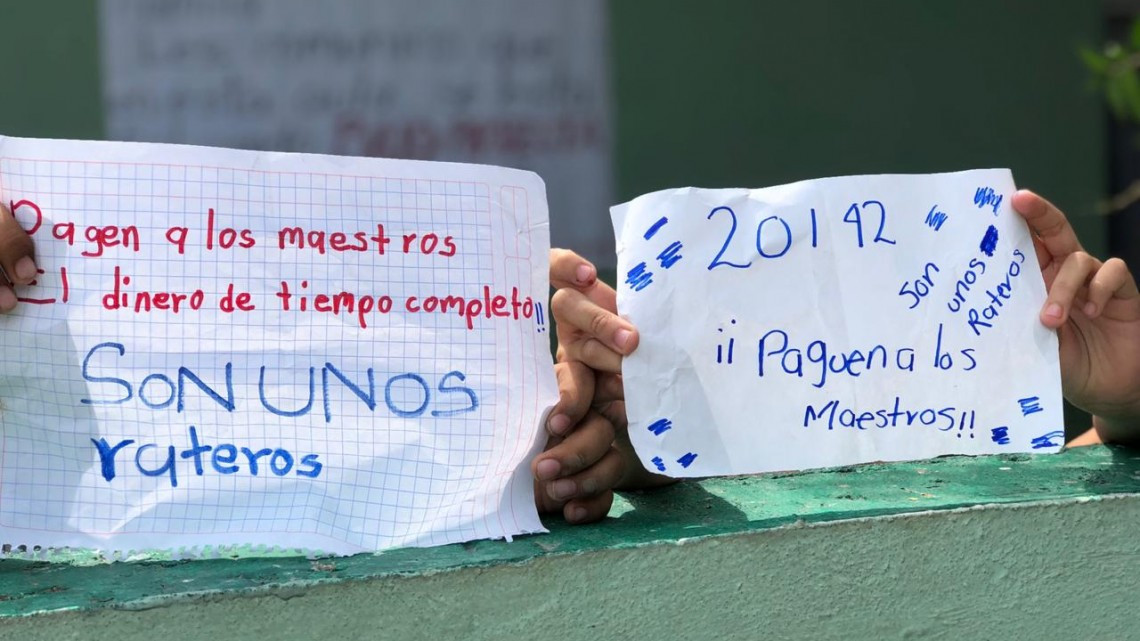 Pagen a los maestros
El dinero de tiempo completo!!
SON UNOS
rateros
20142
Son
unos
Rateros
¡¡ Paguen a los
Maestros!!